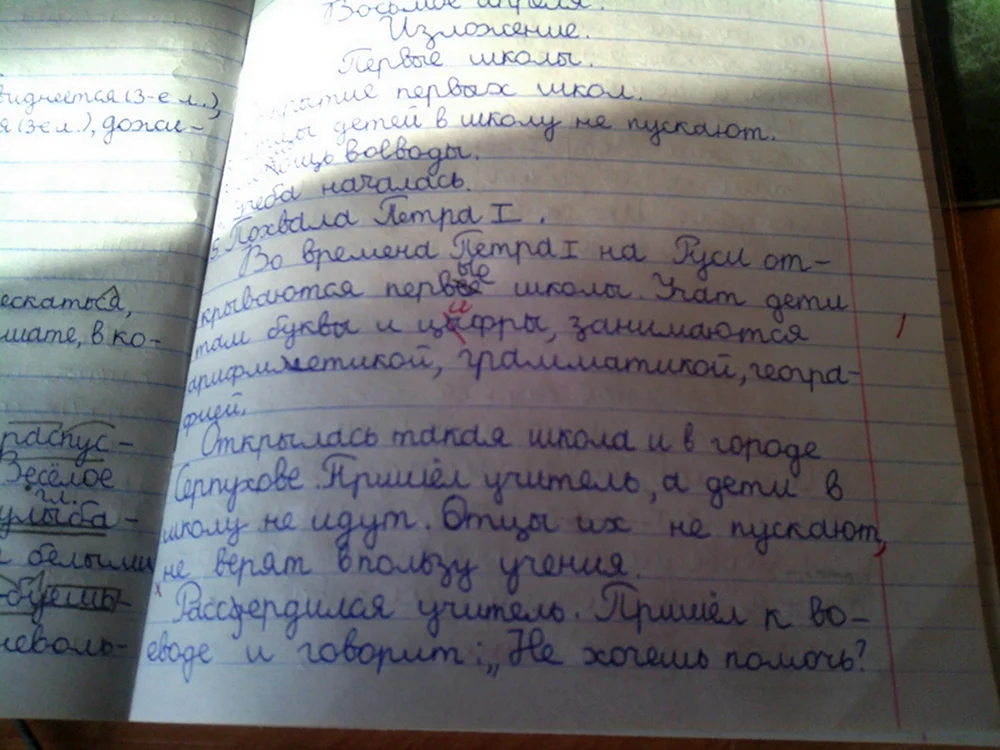 Восьмое апреля.
Изложение.
Первые школы.
виднеется (3-е л.),
крытие первых школ.
я (3 е л.), дожи-
цы детей в школу не пускают.
мощь воеводы.
Учеба началась.
5. Похвала Петра I.
Во времена Петра I на Руси от-
крываются первые школы. Учат дети
ескаться,
там буквы и цифры, занимаются
мате, в ко-
арифметикой, грамматикой, геогра-
фией.
распус-
Открылась такая школа и в городе
Весёлое
Серпухове. Пришёл учитель, а дети в
гл.
улыба-
школу не идут. Отцы их не пускают,
белыми
не верят в пользу учения.
Рассердился учитель. Пришёл к во-
неволь-
еводе и говорит: „Не хочешь помочь?